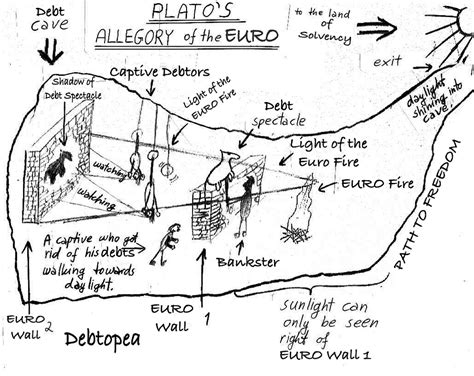 Debt
cave
PLATO'S
ALLEGORY of the EURO
to the land
of
Solvency
exit
daylight
shining into
cave.
Shadow of
Debt Spectacle
Captive Debtors
Light of the
EURO Fire
Debt
spectacle
Light of the
Euro Fire
EURO Fire
watching
watching
A captive who got
rid of his debts
walking towards
daylight.
Bankster
PATH TO FREEDOM
EURO
Wall 2
Debtopea
EURO
Wall 1
sunlight can
only be seen
right of
EURO Wall 1